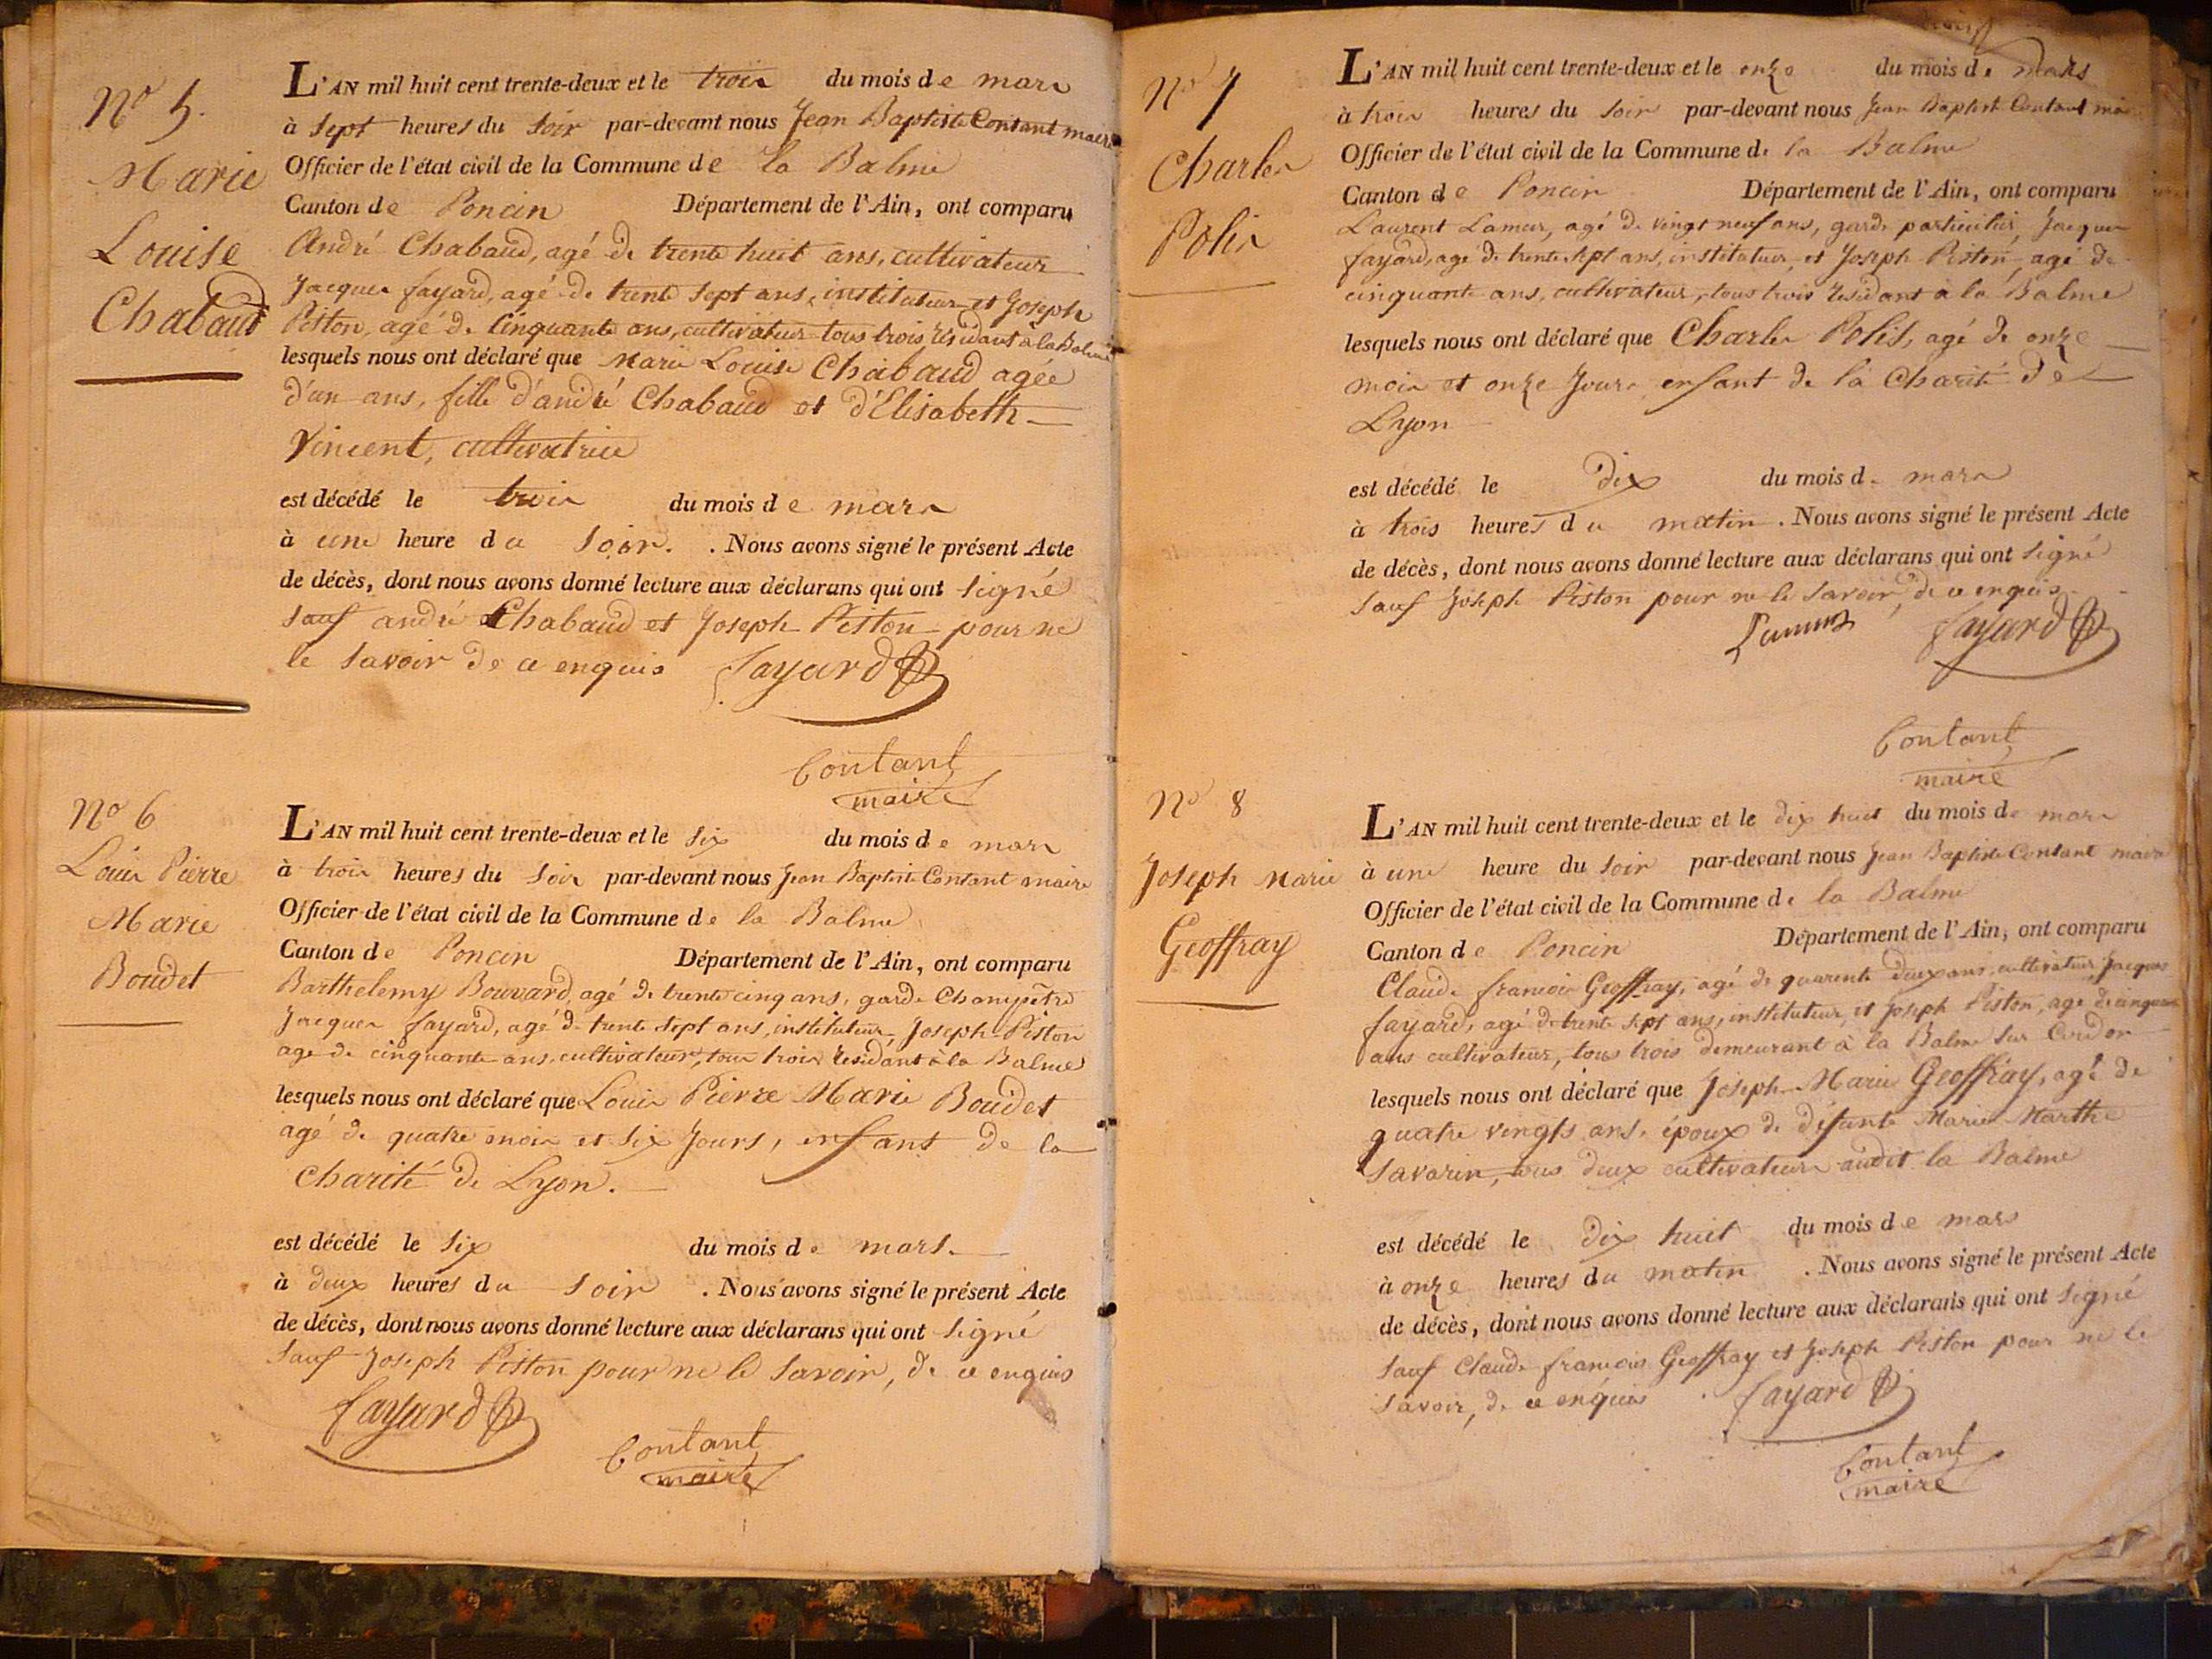 N° 5.
Marie
Louise
Chabaud
L'AN mil huit cent trente-deux et le trois du mois de mars
à sept heures du soir par-devant nous Jean Baptiste Contant maire
Officier de l'état civil de la Commune de la Balme
Canton de Poncin Département de l'Ain, ont comparu
André Chabaud, agé de trente huit ans, cultivateur
Jacques fayard, agé de trente sept ans, instituteur et Joseph
Piston, agé de Cinquante ans, cultivateur tous trois résidant à la Balme
lesquels nous ont déclaré que Marie Louise Chabaud agée
d'un ans, fille d'andré Chabaud et d'Elisabeth
Vincent, cultivatrice
est décédé le trois du mois de mars
à une heure du soir. . Nous avons signé le présent Acte
de décès, dont nous avons donné lecture aux déclarans qui ont signé
sauf andré Chabaud et Joseph Piston pour ne
le savoir de ce enquis fayard
Contant
maire
N° 6
Louis Pierre
Marie
Boudet
L'AN mil huit cent trente-deux et le six du mois de mars
à trois heures du soir par-devant nous Jean Baptiste Contant maire
Officier de l'état civil de la Commune de la Balme
Canton de Poncin Département de l'Ain, ont comparu
Barthelemy Bouvard, agé de trente cinq ans, garde Champêtre
Jacques fayard, agé de trente sept ans, instituteur, Joseph Piston
age de cinquante ans, cultivateur, tous trois residant à la Balme
lesquels nous ont déclaré que Louis Pierre Marie Boudet
agé de quatre mois et six Jours, enfant de la
Charité de Lyon.
est décédé le six du mois de mars.
à deux heures du soir . Nous avons signé le présent Acte
de décès, dont nous avons donné lecture aux déclarans qui ont signé
sauf Joseph Piston pour ne le savoir, de ce enquis
fayard
Contant
maire
N° 7
Charles
Polis
L'AN mil huit cent trente-deux et le onze du mois de mars
à trois heures du soir par-devant nous Jean Baptiste Contant maire
Officier de l'état civil de la Commune de la Balme
Canton de Poncin Département de l'Ain, ont comparu
Laurent Lamur, agé de vingt neuf ans, garde particulier, Jacques
fayard, agé de trente sept ans, instituteur, et Joseph Piston, agé de
cinquante ans, cultivateur, tous trois résidant à la Balme
lesquels nous ont déclaré que Charles Polis, agé de onze
mois et onze Jours enfant de la Charité de
Lyon
est décédé le dix du mois de mars
à trois heures du matin . Nous avons signé le présent Acte
de décès, dont nous avons donné lecture aux déclarans qui ont signé
sauf Joseph Piston pour ne le savoir, de ce enquis
fayard
Contant
maire
N° 8
Joseph Marie
Geoffray
L'AN mil huit cent trente-deux et le dix huit du mois de mars
à une heure du soir par-devant nous Jean Baptiste Contant maire
Officier de l'état civil de la Commune de la Balme
Canton de Poncin Département de l'Ain, ont comparu
Claude francois Geoffray, agé de quarente deux ans, cultivateur, Jacques
fayard, agé de trente sept ans, instituteur, et Joseph Piston, agé de cinquante
ans cultivateur, tous trois demeurant à la Balme sur Cerdon
lesquels nous ont déclaré que Joseph Marie Geoffray, agé de
quatre vingts ans, époux de défunte Marie Marthe
Savarin, tous deux cultivateurs audit la Balme
est décédé le dix huit du mois de mars
à onze heures du matin . Nous avons signé le présent Acte
de décès, dont nous avons donné lecture aux déclarans qui ont signé
sauf Claude francois Geoffray et Joseph Piston pour ne le
savoir, de ce enquis . fayard
Contant
maire